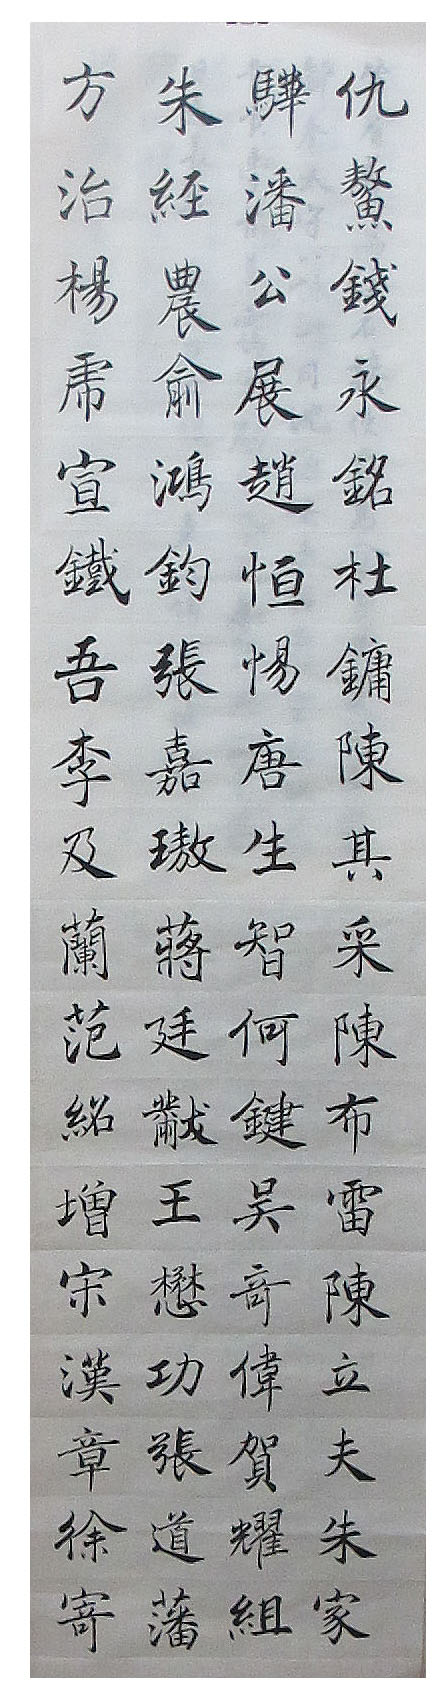 仇鰲錢永銘杜鏞陳其采陳布雷陳立夫朱家
驊潘公展趙恒惕唐生智何鍵吴奇偉賀耀組
朱經農俞鴻鈞張嘉璈蔣廷黻王懋功張道藩
方治楊虎宣鐵吾李及蘭范紹增宋漢章徐寄